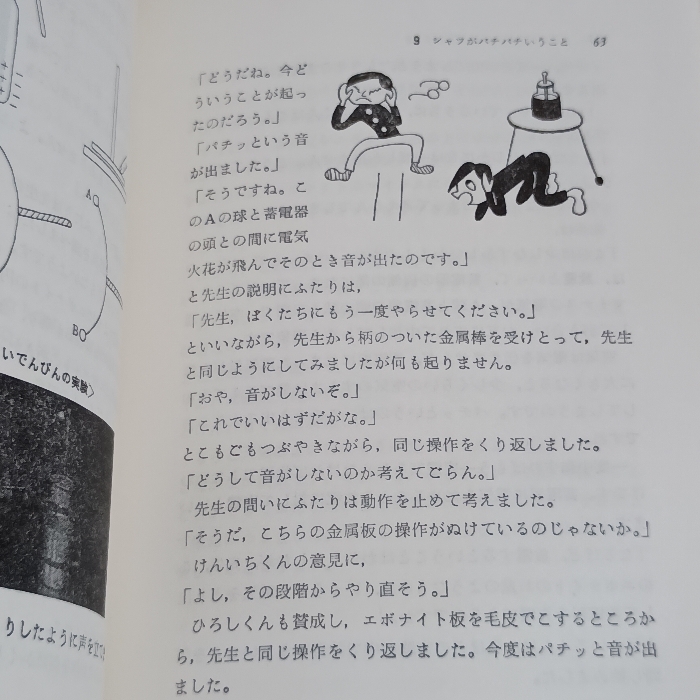 9 シャツがパチパチいうこと 63
「どうだね。今ど
ういうことが起っ
たのだろう。」
「パチッという音
が出ました。」
「そうですね。こ
のAの球と蓄電器
の頭との間に電気
火花が飛んでそのとき音が出たのです。」
と先生の説明にふたりは，
「先生，ぼくたちにもう一度やらせてください。」
といいながら，先生から柄のついた金属棒を受けとって，先生
と同じようにしてみましたが何も起りません。
「おや，音がしないぞ。」
「これでいいはずだがな。」
とこもごもつぶやきながら，同じ操作をくり返しました。
「どうして音がしないのか考えてごらん。」
先生の問いにふたりは動作を止めて考えました。
「そうだ，こちらの金属板の操作がぬけているのじゃないか。」
けんいちくんの意見に，
「よし，その段階からやり直そう。」
ひろしくんも賛成し，エボナイト板を毛皮でこするところか
ら，先生と同じ操作をくり返しました。今度はパチッと音が出
ました。
A
B
いでんびんの実験〉
りしたように声を立て